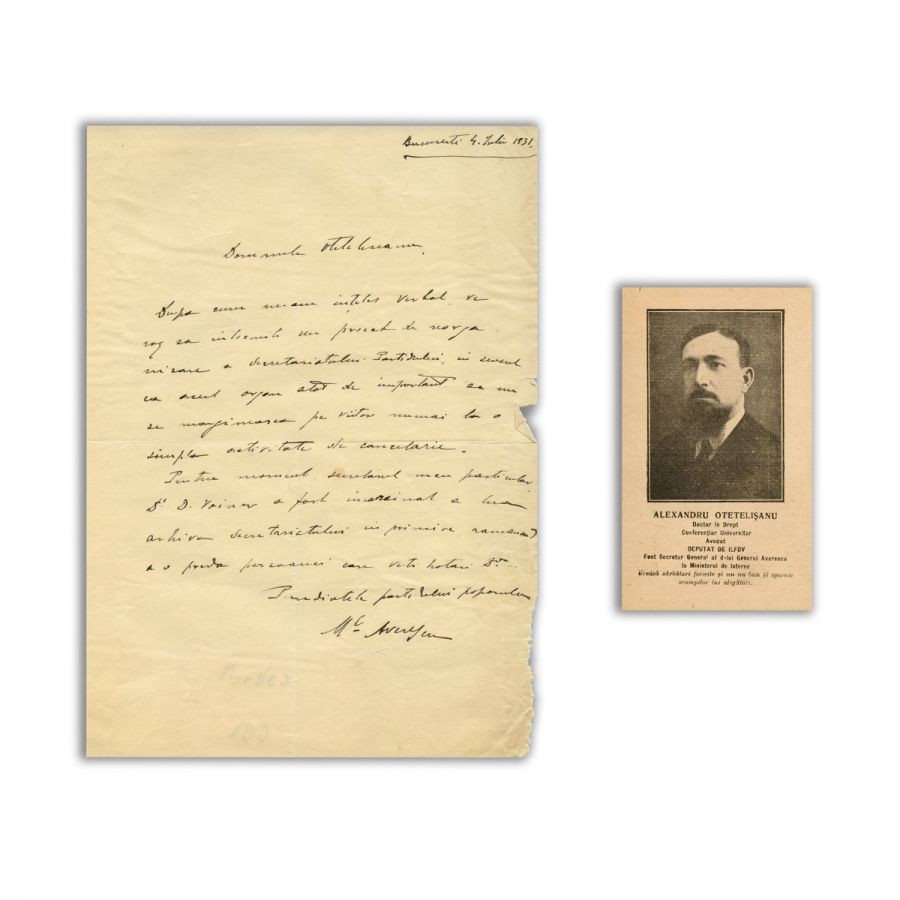 Bucuresti 4. Iulie 1931.
Domnule Oteteleseanu,
Dupa cum ne-am ințeles verbal, ve
rog sa intocmiti un proect de
a Secretariatului Partidului, in sensul
ca acest organ atat de important sa nu
se margineasca pe viitor numai la o
simpla activitate de cancelarie.
Pentru moment, secretarul meu particular
Dl D. Voinov a fost insarcinat a lua
arhiva secretariatului in primire ramanand
a o preda persoanei care veti hotari Dv.
Presedintele partidului poporului
Ml Averescu
100
ALEXANDRU OTETELIȘANU
Doctor în Drept
Conferențiar Universitar
Avocat
DEPUTAT DE ILFOV
Fost Secretar General al d-lui General Averescu
la Ministerul de Interne
Urează sărbători fericite și un an bun și spornic
scumpilor lui alegători.